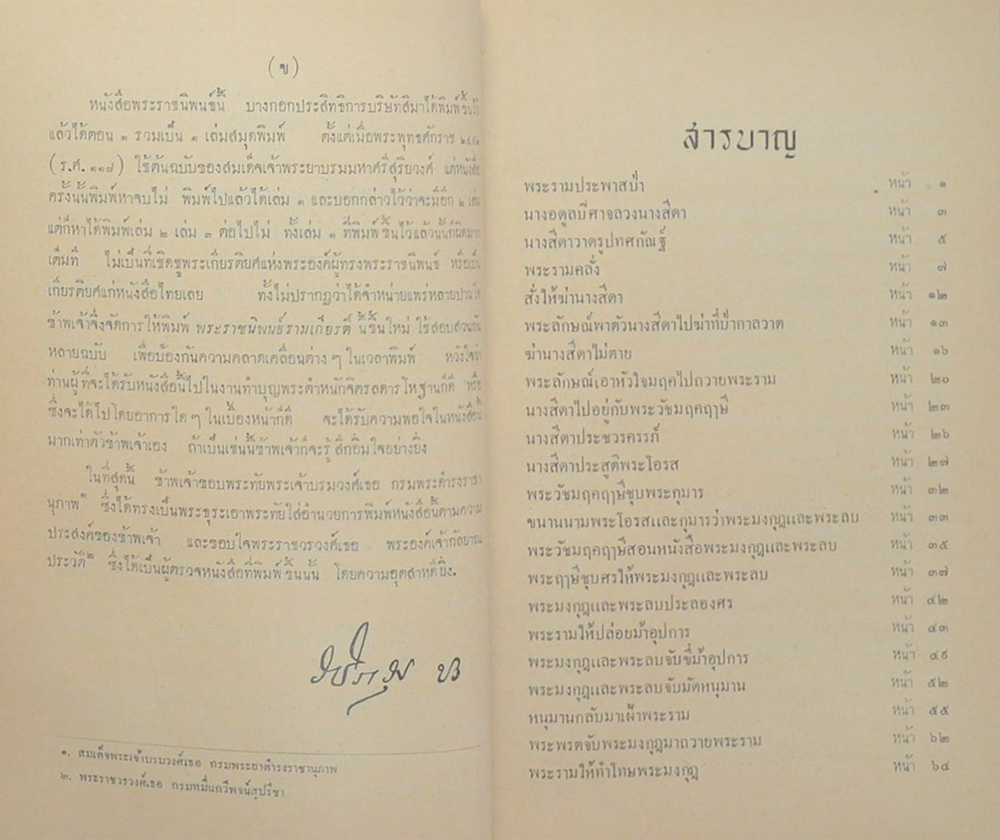 (ข)
หนังสือพระราชนิพนธ์นี้ บางกอกประสิทธิการบริษัทสิมาได้พิมพ์ขึ้นไว้
แล้วได้ตอน ๑ รวมเป็น ๑ เล่มสมุดพิมพ์ ตั้งแต่เมื่อพระพุทธศักราช
(ร.ศ. ๑๑๘) ใช้ต้นฉบับของสมเด็จเจ้าพระยาบรมมหาศรีสุริยวงศ์ แต่หนังสือ
ครั้งนั้นพิมพ์หาจบไม่ พิมพ์ไปแล้วได้เล่ม ๑ และบอกกล่าวไว้ว่าจะมีอีก ๒ เล่ม
แต่ก็หาได้พิมพ์เล่ม ๒ เล่ม ๓ ต่อไปไม่ ทั้งเล่ม ๑ ที่พิมพ์ขึ้นไว้แล้วนั้นก็ผิดมาก
เต็มที ไม่เป็นที่เชิดชูพระเกียรติยศแห่งพระองค์ผู้ทรงพระราชนิพนธ์ หรือเป็น
เกียรติยศแก่หนังสือไทยเลย ทั้งไม่ปรากฏว่าได้จำหน่ายแพร่หลาย
ข้าพเจ้าจึ่งจัดการให้พิมพ์ พระราชนิพนธ์รามเกียรติ์ นี้ขึ้นใหม่ ใช้สอบสวนกัน
หลายฉบับ เพื่อป้องกันความคลาดเคลื่อนต่าง ๆ ในเวลาพิมพ์ หวังใจว่า
ท่านผู้ที่จะได้รับหนังสือนี้ไปในงานทำบุญพระตำหนักจิตรลดารโหฐานก็ดี หรือ
ซึ่งจะได้ไปโดยอาการใด ๆ ในเบื้องหน้าก็ดี จะได้รับความพอใจในหนังสือนี้
มากเท่าตัวข้าพเจ้าเอง ถ้าเป็นเช่นนี้ข้าพเจ้าก็จะรู้สึกอิ่มใจอย่างยิ่ง
ในที่สุดนี้ ข้าพเจ้าขอบพระทัยพระเจ้าบรมวงศ์เธอ กรมพระดำรงราชา
นุภาพ๑ ซึ่งได้ทรงเป็นพระธุระเอาพระทัยใส่อำนวยการพิมพ์หนังสือนี้ตามความ
ประสงค์ของข้าพเจ้า และขอบใจพระราชวรวงศ์เธอ พระองค์เจ้ากัลยาณ
ประวัติ๒ ซึ่งได้เป็นผู้ตรวจหนังสือที่พิมพ์ขึ้นนั้น โดยความอุตสาหดียิ่ง.
๑. สมเด็จพระเจ้าบรมวงศ์เธอ กรมพระยาดำรงราชานุภาพ
๒. พระราชวรวงศ์เธอ กรมหมื่นกวีพจน์สุปรีชา
สารบาญ
พระรามประพาสป่า หน้า ๑
นางอดูลปีศาจลวงนางสีดา หน้า ๓
นางสีดาวาดรูปทศกัณฐ์ หน้า ๕
พระรามคลั่ง หน้า ๗
สั่งให้ฆ่านางสีดา หน้า ๑๒
พระลักษณ์พาตัวนางสีดาไปฆ่าที่ป่ากาลวาต หน้า ๑๓
ฆ่านางสีดาไม่ตาย หน้า ๑๖
พระลักษณ์เอาหัวใจมฤคไปถวายพระราม หน้า ๒๐
นางสีดาไปอยู่กับพระวัชมฤคฤๅษี หน้า ๒๓
นางสีดาประชวรครรภ์ หน้า ๒๖
นางสีดาประสูติพระโอรส หน้า ๒๗
พระวัชมฤคฤๅษีชุบพระกุมาร หน้า ๓๒
ขนานนามพระโอรสและกุมารว่าพระมงกุฎและพระลบ หน้า ๓๓
พระวัชมฤคฤๅษีสอนหนังสือพระมงกุฎและพระลบ หน้า ๓๕
พระฤๅษีชุบศรให้พระมงกุฎและพระลบ หน้า ๓๗
พระมงกุฎและพระลบประลองศร หน้า ๔๒
พระรามให้ปล่อยม้าอุปการ หน้า ๔๓
พระมงกุฎและพระลบจับขี่ม้าอุปการ หน้า ๔๙
พระมงกุฎและพระลบจับมัดหนุมาน หน้า ๕๒
หนุมานกลับมาเฝ้าพระราม หน้า ๕๕
พระพรตจับพระมงกุฎมาถวายพระราม หน้า ๖๒
พระรามให้ทำโทษพระมงกุฎ หน้า ๖๔